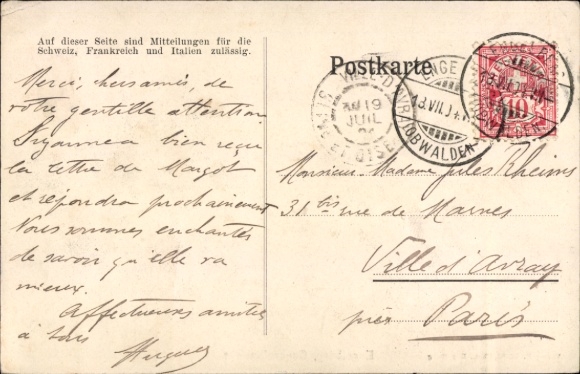 Auf dieser Seite sind Mitteilungen für die
Schweiz, Frankreich und Italien zulässig.
Postkarte
Merci, chers amis, de
votre gentille attention
a bien reçu
la lettre de Margot
et répondra prochainement
Nous sommes enchantés
de savoir qu'elle va
mieux.
Affectueuses amitiés
à tous
Hugues
VILLE-D'AVRAY
19
JUIL
SEINE-ET-OISE
ENGE
13.VII.04
(OBWALDEN)
10
Monsieur Madame Jules Rheims
31 bis rue de Marnes
Ville d'Avray
près Paris